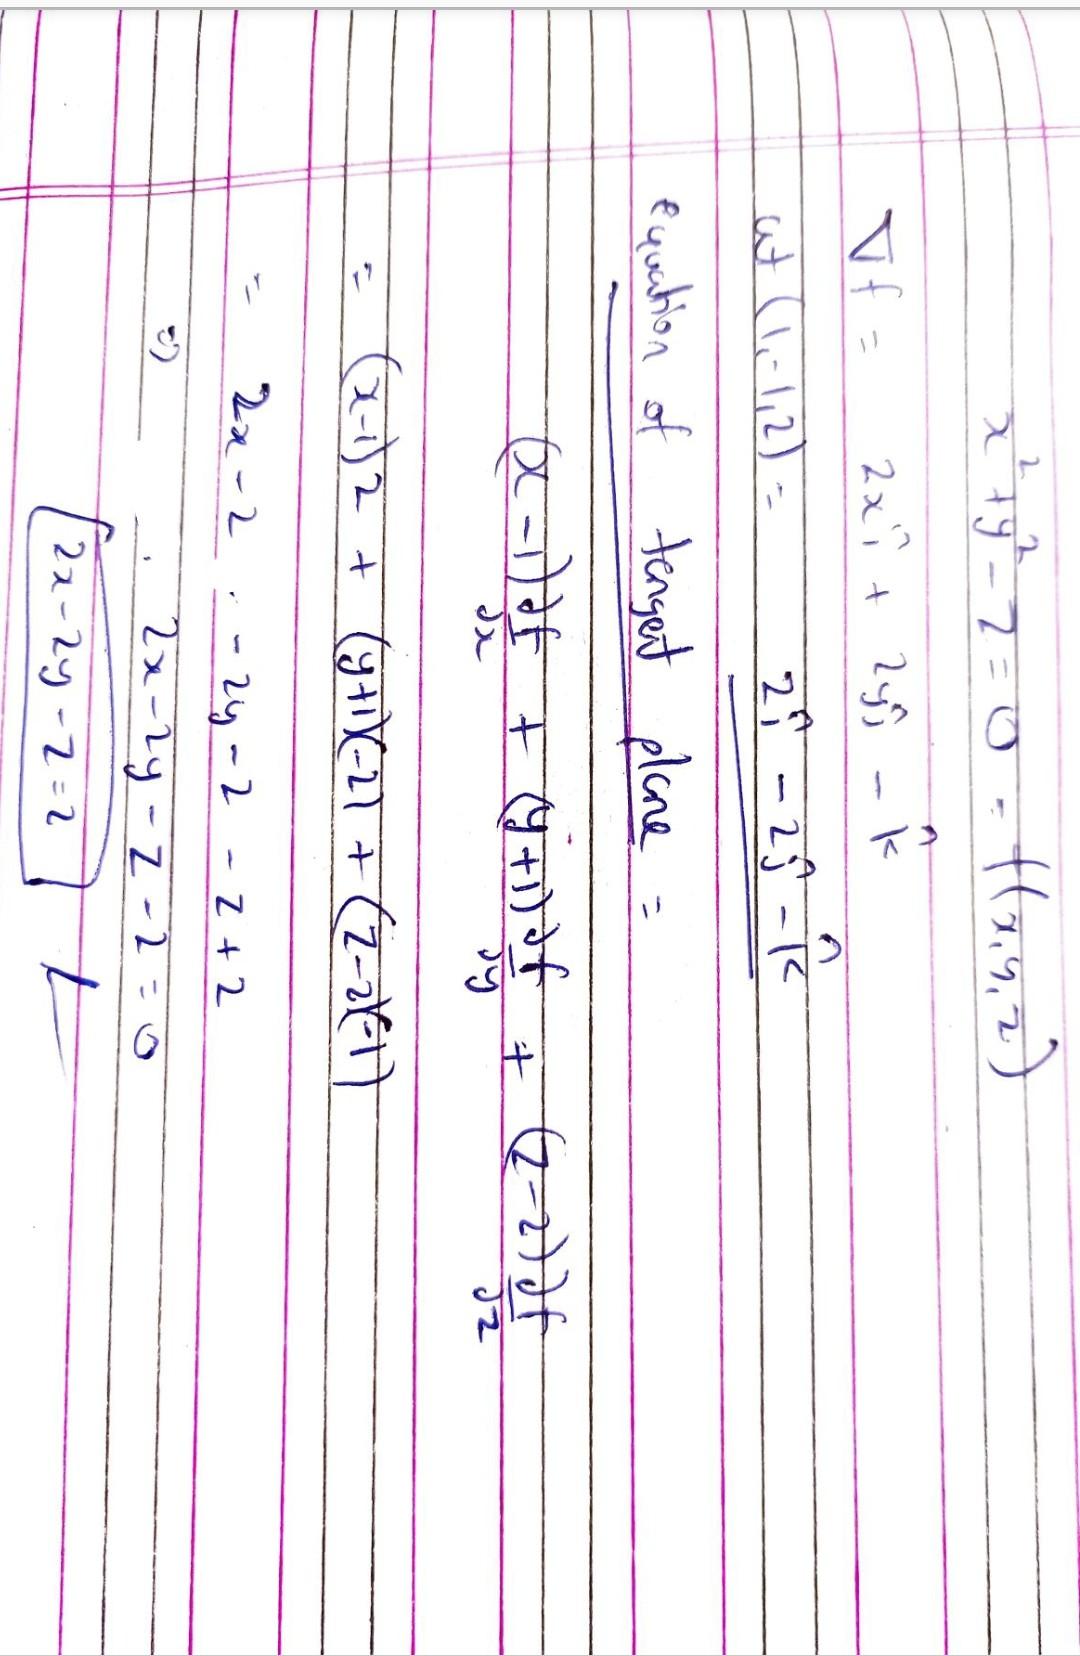 x² + y² - z = 0 = f(x, y, z)
∇f = 2xî + 2yĵ - k̂
at (1, -1, 2) = 2î - 2ĵ - k̂
equation of tengent plane =
(x - 1) ∂f/∂x + (y + 1) ∂f/∂y + (z - 2) ∂f/∂z
= (x-1)2 + (y+1)(-2) + (z-2)(-1)
= 2x - 2 - 2y - 2 - z + 2
⇒ 2x - 2y - z - 2 = 0
2x - 2y - z = 2